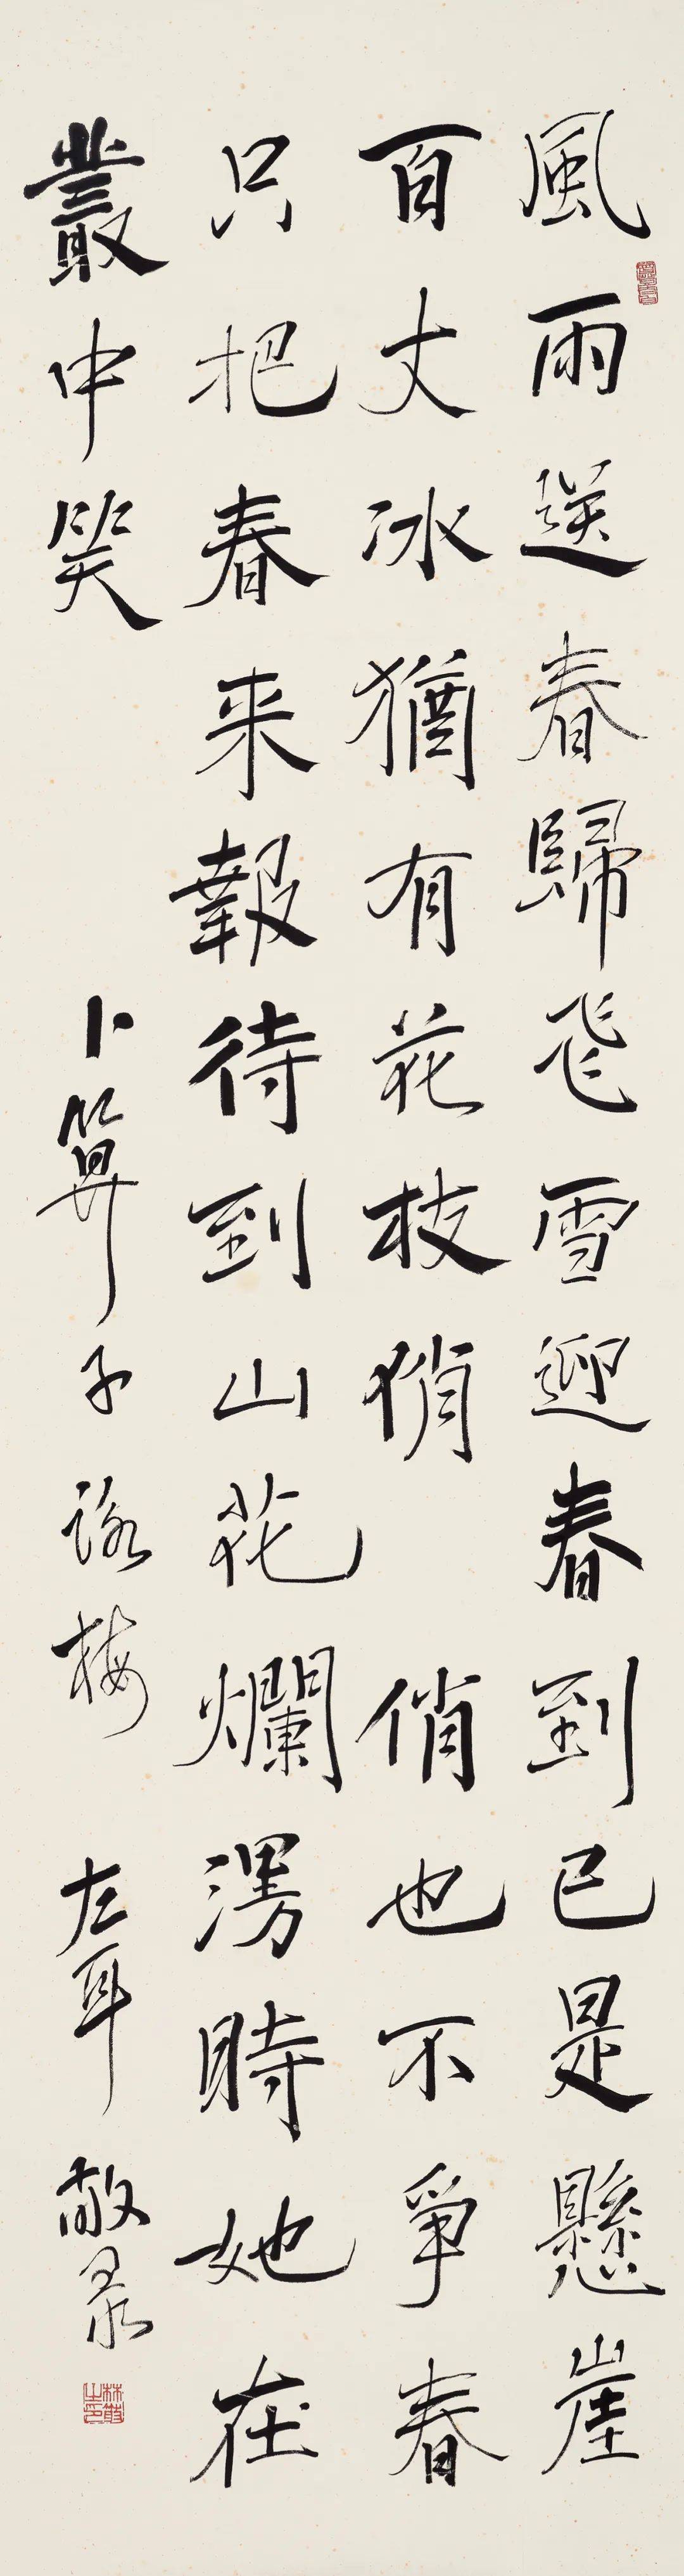 風雨送春歸飛雪迎春到已是懸崖
百丈冰猶有花枝俏 俏也不爭春
只把春来報待到山花爛漫時她在
叢中笑 卜算子 詠梅 左耳 敬录
林散之印